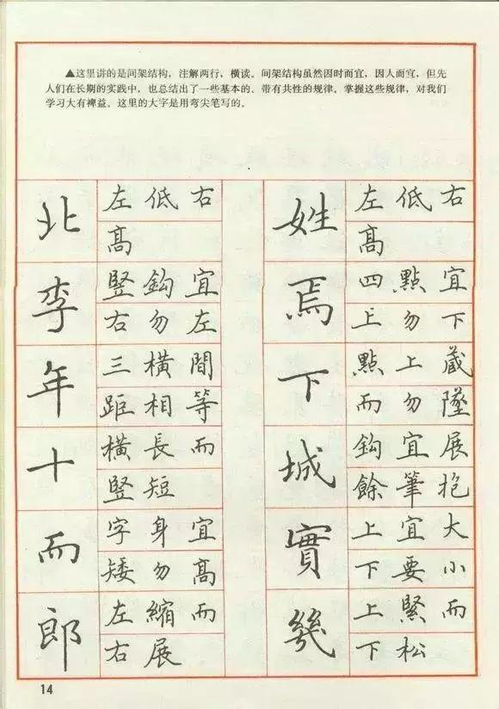 ▲这里讲的是间架结构，注解两行，横读。间架结构虽然因时而宜，因人而宜，但先
人们在长期的实践中，也总结出了一些基本的、带有共性的规律。掌握这些规律，对我们
学习大有裨益。这里的大字是用弯尖笔写的。
北
左低右
髙
李
竪鈎宜
右勿左
年
三横間
距相等
十
横長而
竪短
而
字身宜
矮勿髙
郎
左縮而
右展
姓
左低右
髙
焉
四點宜
上勿下
下
點上藏
而勿墜
城
鈎宜展
餘筆抱
實
上宜大
下要小
幾
上緊而
下松
14